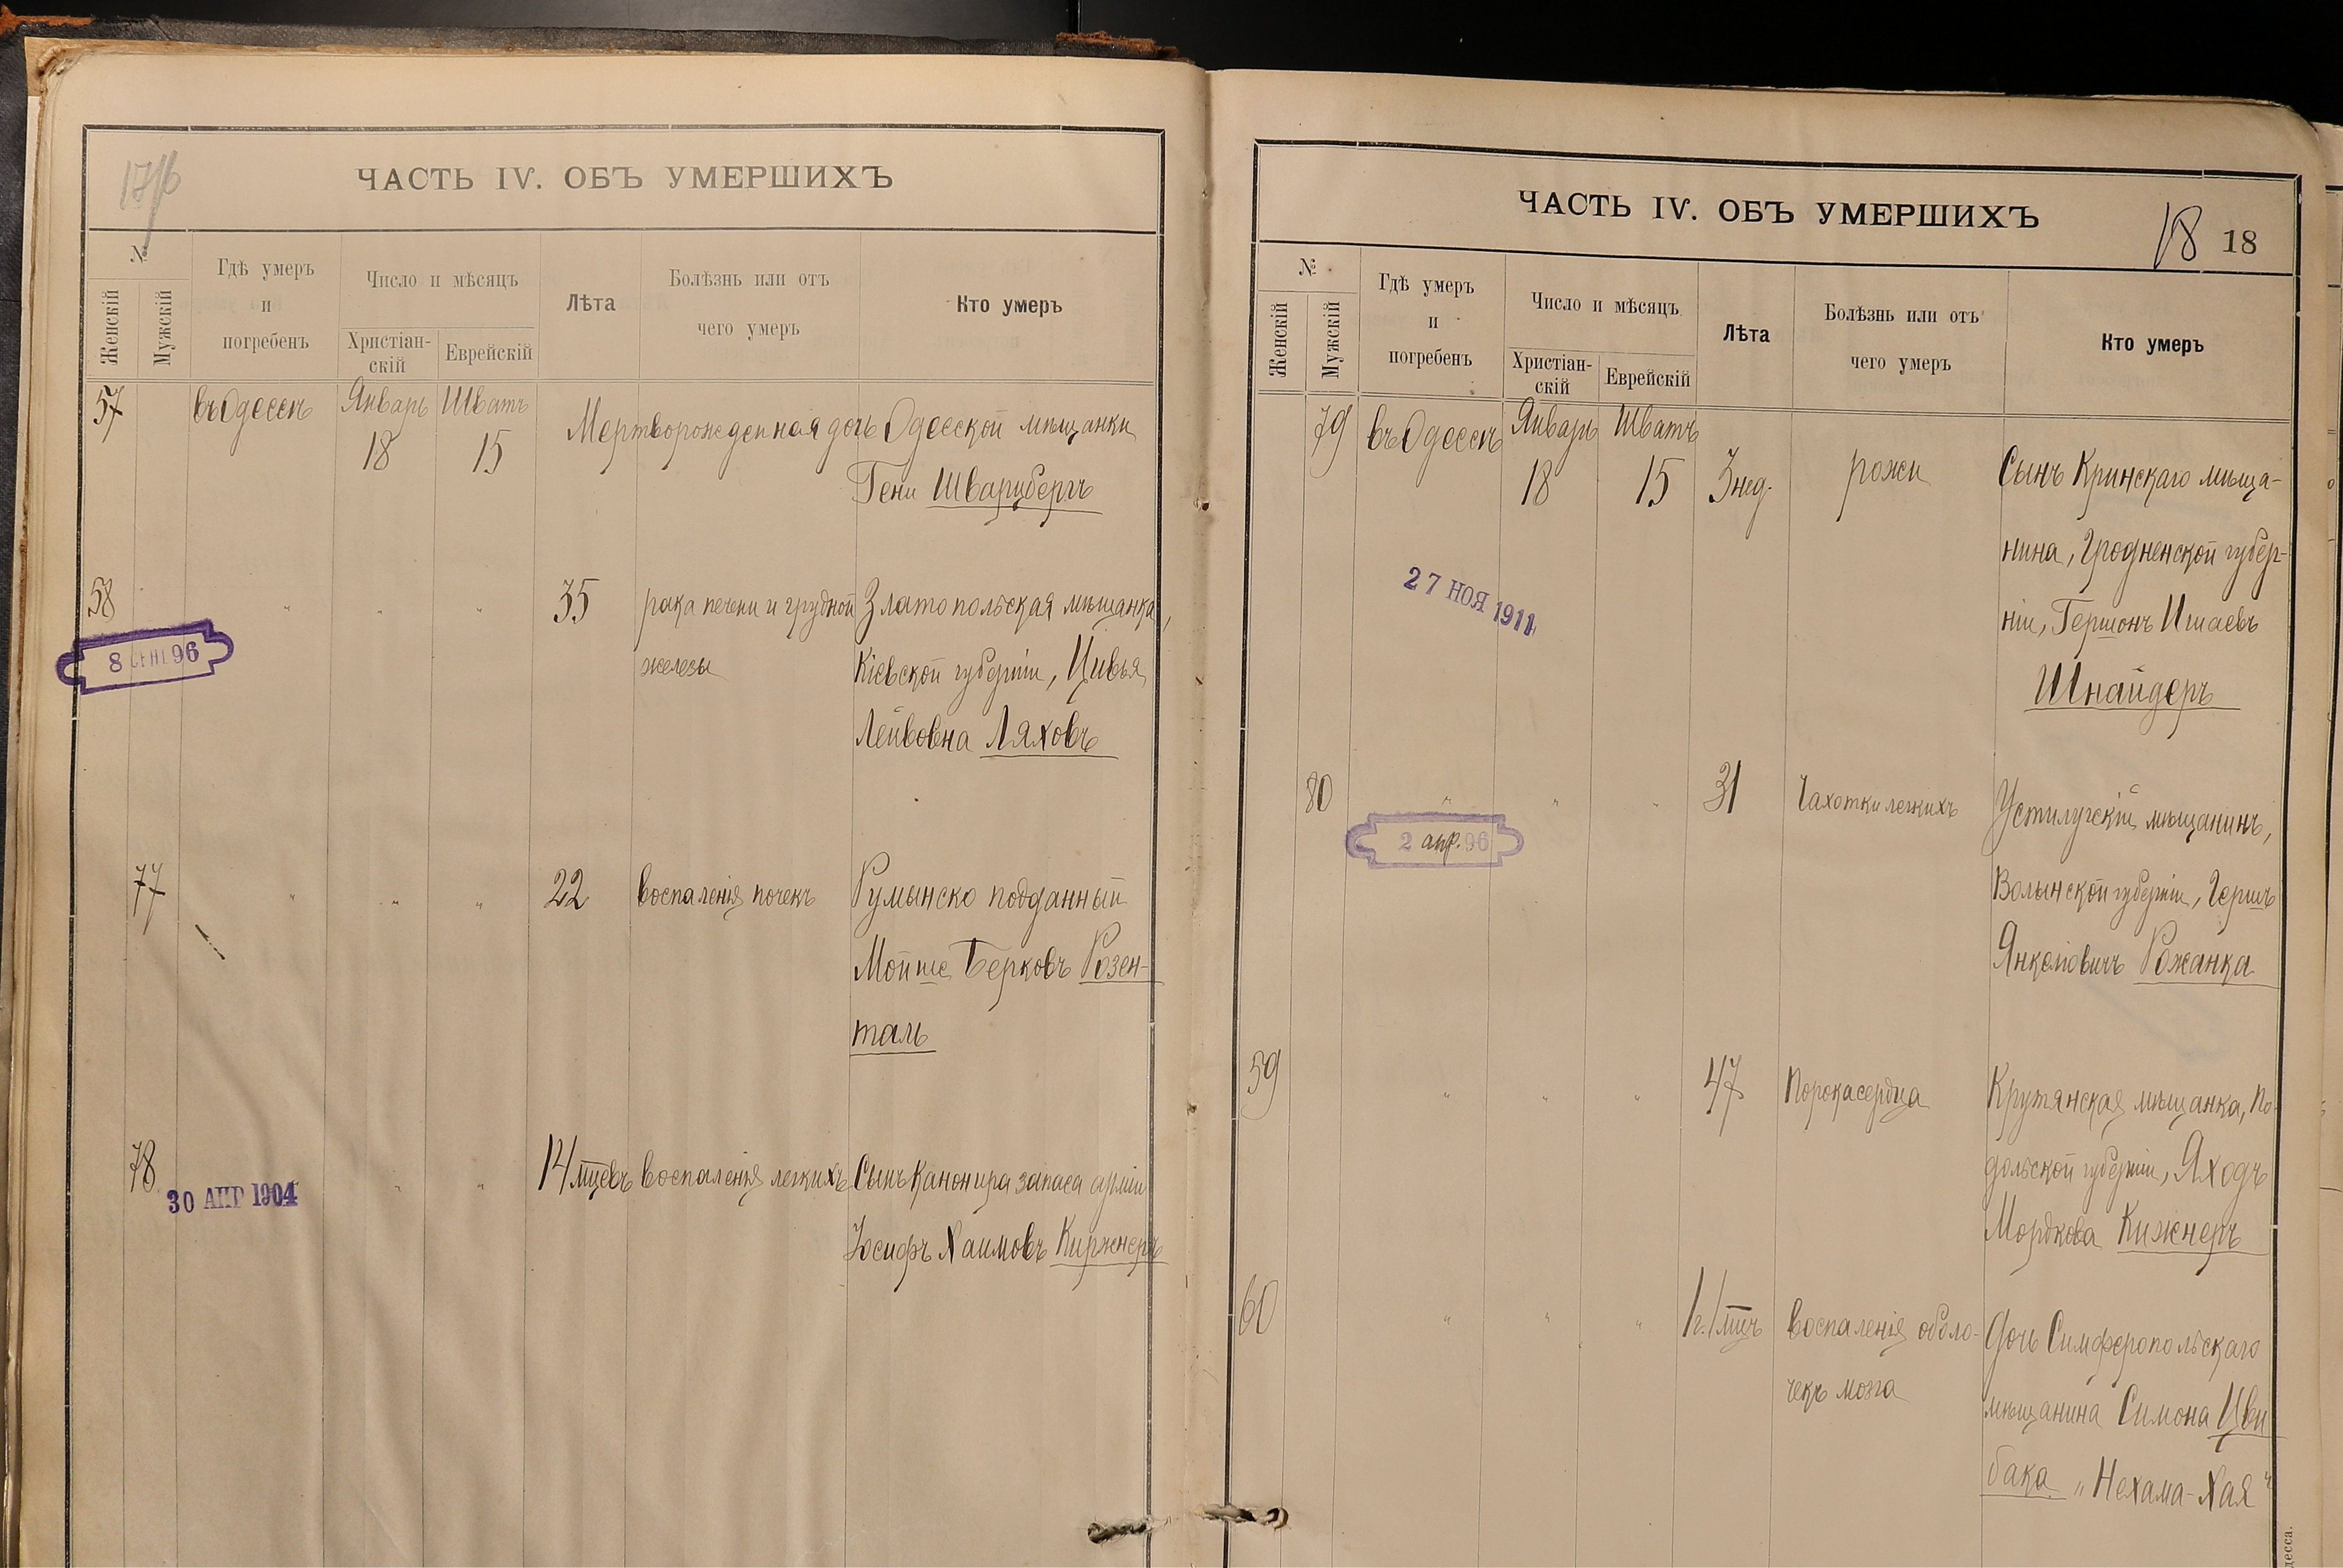 176
ЧАСТЬ IV. ОБЪ УМЕРШИХЪ
№
Женскій
Мужскій
Гдѣ умеръ
и
погребенъ
Число и мѣсяцъ
Христіан-
скій
Еврейскій
Лѣта
Болѣзнь или отъ
чего умеръ
Кто умеръ
57 въ Одессѣ Январь Шватъ Мертворожденная дочь Одесской мѣщанки
18 15 Гени Шварцбергъ
58 " " " 35 рака печени и грудной Златопольская мѣщанка,
8 СЕНТ 96 железы Кіевской губерніи, Цивья
Лейвовна Ляховъ
77 " " " 22 воспаленія почекъ Румынско подданный
Мойше Берковъ Розен-
таль
78 " " 14 мцевъ воспаленія легкихъ Сынъ канонира запаса арміи
30 АПР 1904
Іосифъ Хаимовъ Киржнеръ
ЧАСТЬ IV. ОБЪ УМЕРШИХЪ
18 18
№
Женскій
Мужскій
Гдѣ умеръ
и
погребенъ
Число и мѣсяцъ
Христіан-
скій
Еврейскій
Лѣта
Болѣзнь или отъ
чего умеръ
Кто умеръ
79 въ Одессѣ Январь Шватъ
18 15 3 нед. рожи Сынъ Кринскаго мѣща-
нина, Гродненской губер-
27 НОЯ 1911
ніи, Гершонъ Ишаевъ
Шнайдеръ
80 " " " 31 Чахотки легкихъ Устилугскій мѣщанинъ,
2 апр. 96
Волынской губерніи, Гершъ
Янкеліовичъ Рожанка
59 " " " 47 Порока сердца Крутянская мѣщанка, По-
дольской губерніи, Яходъ
Мордкова Кижнеръ
60 " " " 1 г. 1 мцъ воспаленія оболо- Дочь Симферопольскаго
чекъ мозга мѣщанина Симона Цви
бака "Нехама-Хая"
десса.